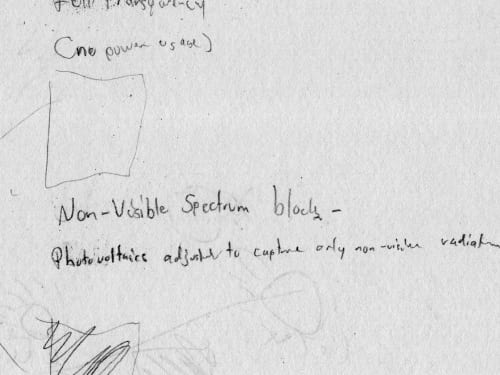 Full Transparency
(no power usage)
Non-Visible Spectrum block -
Photovoltaics adjusted to capture only non-visible radiation